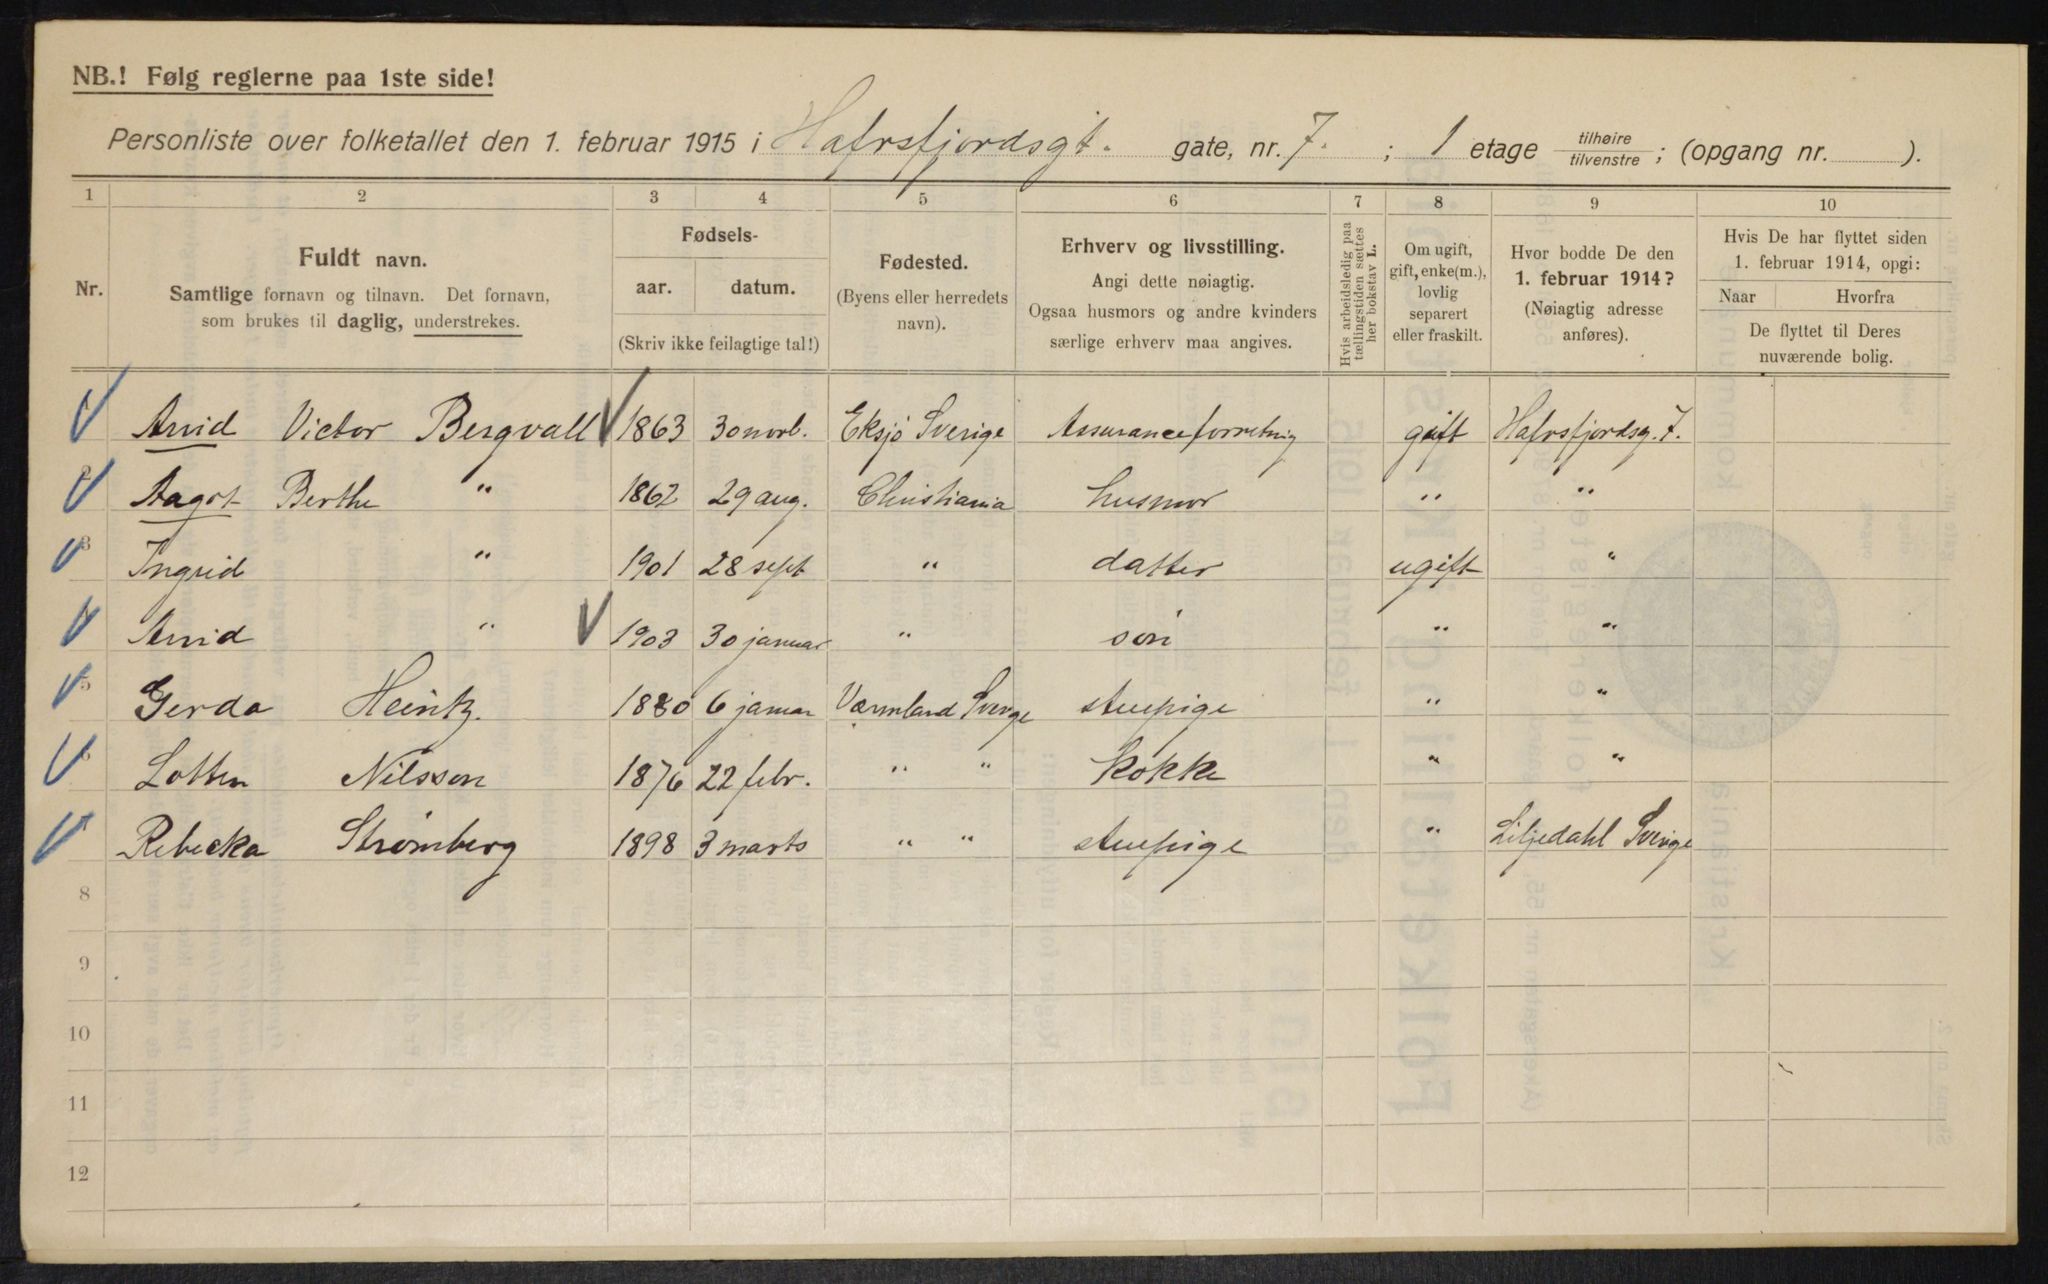 NB.! Følg reglerne paa 1ste side!
Personliste over folketallet den 1. februar 1915 i Hafrsfjordsgt. gate, nr. 7. ; 1 etage tilhøire / tilvenstre ; (opgang nr. ).
1 2 3 4 5 6 7 8 9 10
Nr.
Fuldt navn.
Samtlige fornavn og tilnavn. Det fornavn,
som brukes til daglig, understrekes.
Fødsels-
aar. datum.
(Skriv ikke feilagtige tal!)
Fødested.
(Byens eller herredets
navn).
Erhverv og livsstilling.
Angi dette nøiagtig.
Ogsaa husmors og andre kvinders
særlige erhverv maa angives.
Hvis arbeidsledig paa
tællingstiden sættes
her bokstav L.
Om ugift,
gift, enke(m.),
lovlig
separert
eller fraskilt.
Hvor bodde De den
1. februar 1914?
(Nøiagtig adresse
anføres).
Hvis De har flyttet siden
1. februar 1914, opgi:
Naar Hvorfra
De flyttet til Deres
nuværende bolig.
1 Arvid Victor Bergvall 1863 30 novb. Eksjø Sverige Assuranceforretnig gift Hafrsfjordsg. 7.
2 Aagot Berthe " 1862 29 aug. Christiania husmor " "
3 Ingrid " 1901 28 sept " datter ugift "
4 Arvid " 1903 30 januar " søn " "
5 Gerda Heintz. 1880 6 januar Värmland Sverige stuepige " "
6 Lotten Nilsson 1876 22 febr. " " kokke " "
7 Rebecka Strömberg 1898 3 marts " " stuepige " Liljedahl Sverige
8
9
10
11
12